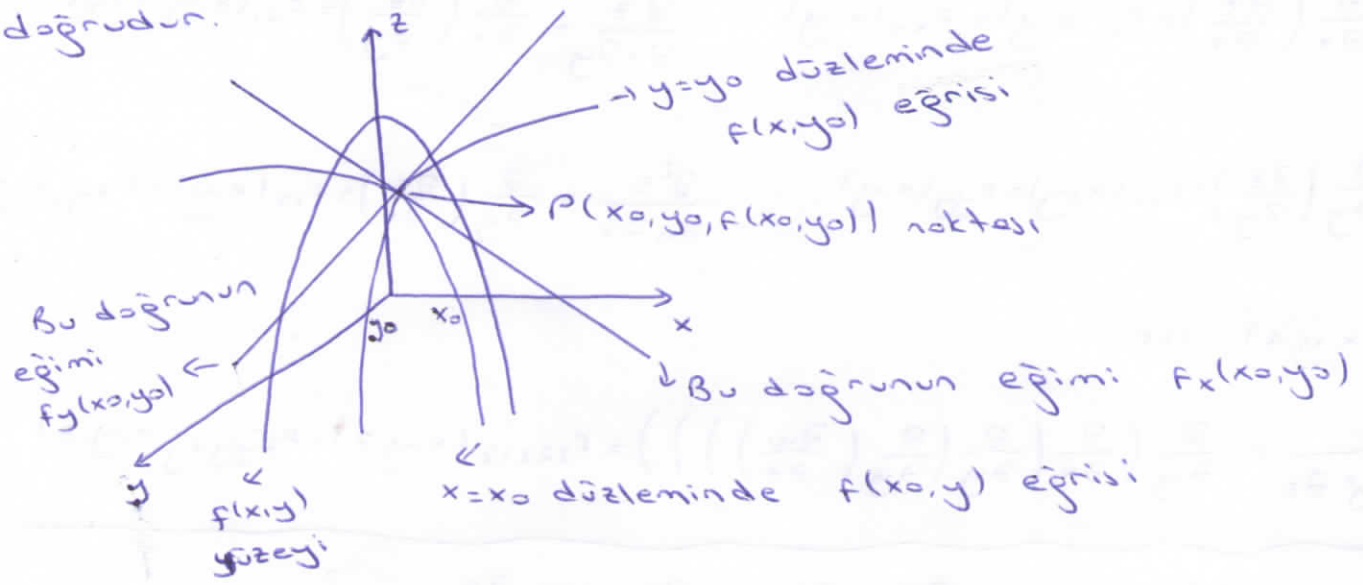 doğrudur.
z
→ y=y0 düzleminde
f(x,y0) eğrisi
P(x0,y0,f(x0,y0)) noktası
Bu doğrunun
eğimi
fy(x0,y0)
y0
x0
x
Bu doğrunun eğimi fx(x0,y0)
y
f(x,y)
yüzeyi
x=x0 düzleminde f(x0,y) eğrisi